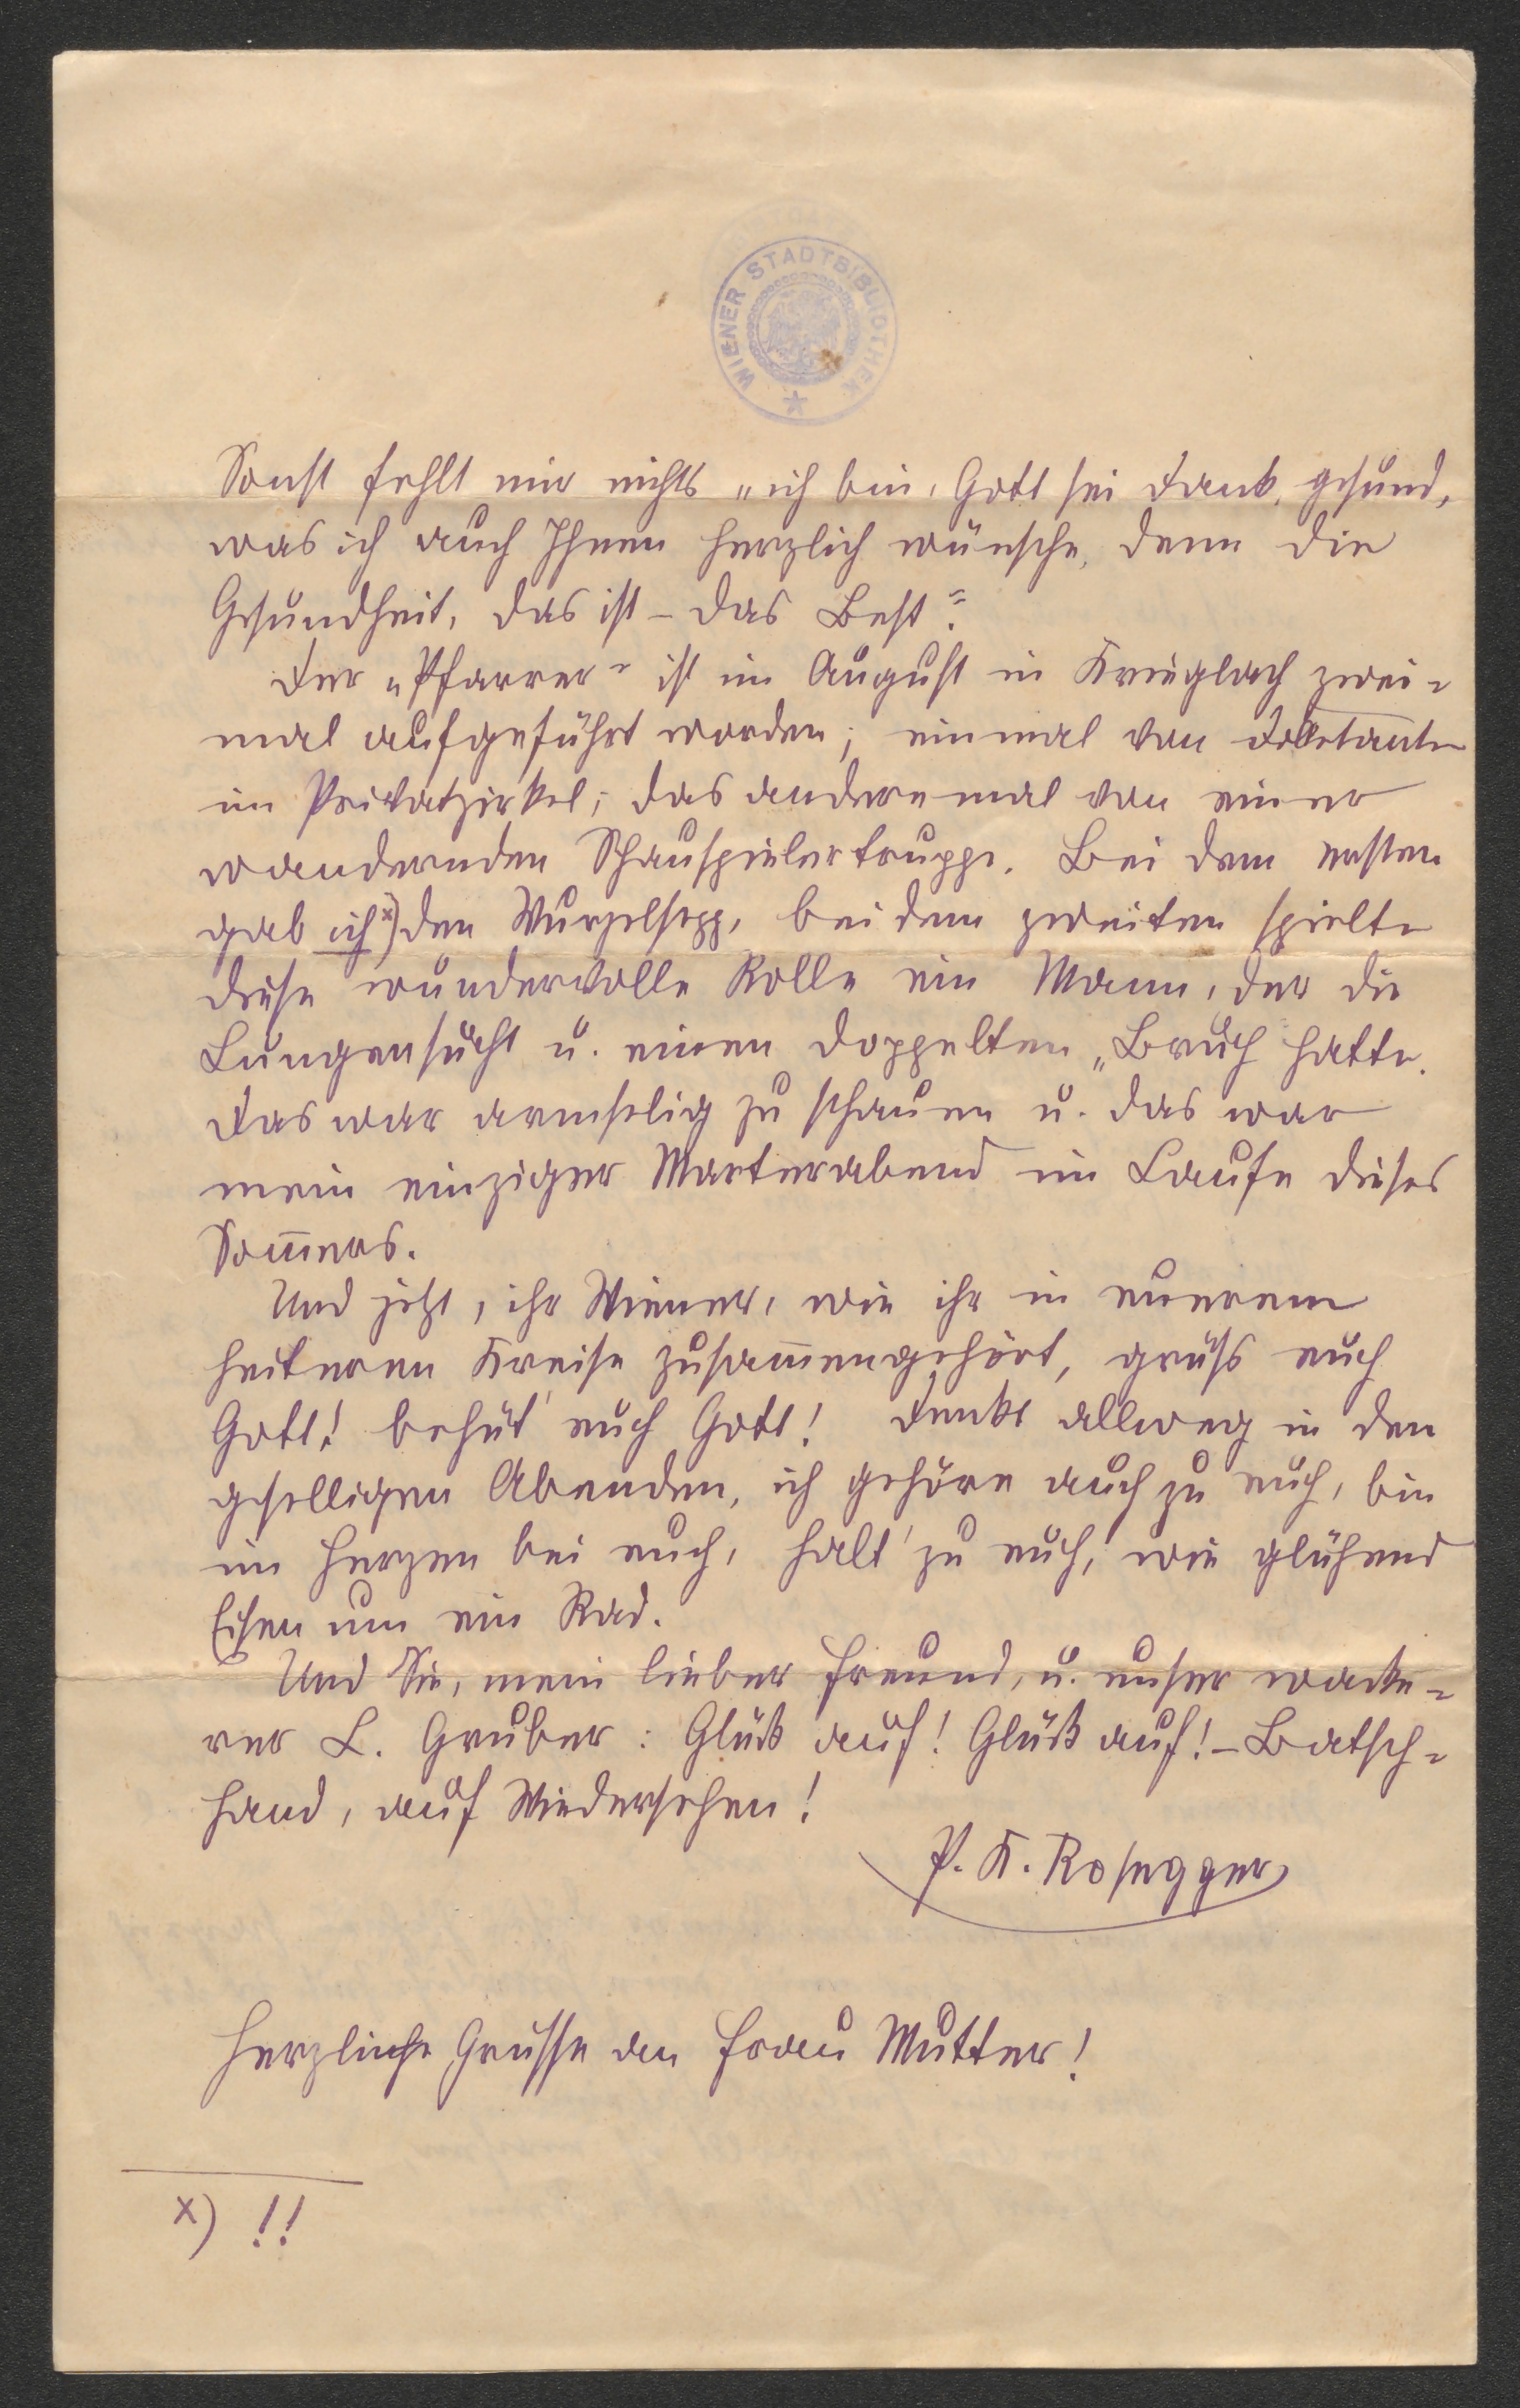 WIENER STADTBIBLIOTHEK
Sonst fehlt mir nichts „ich bin, Gott sei Dank, gesund,
was ich auch Ihnen herzlich wünsche, denn die
Gesundheit, das ist – das Best“.
Der „Pfarrer“ ist im August in Krieglach zwei-
mal aufgeführt worden; einmal von Dilletanten
im Privatzirkel; das anderemal von einer
wandernden Schauspielertruppe. Bei dem ersten
gab ich x) den Wurzelsepp, bei dem zweiten spielte
diese wundervolle Rolle ein Mann, der die
Lungensucht u. einen doppelten „Bruch hatte.
Das war armselig zu schauen u. das war
mein einziger Marterabend im Laufe dieses
Som̄ers.
Und jetzt, ihr Wiener, wie ihr in euerem
heiteren Kreise zusam̄engehört, grüss euch
Gott! behüt' euch Gott! Denkt allweg in den
geselligen Abenden, ich gehöre auch zu euch, bin
im Herzen bei euch, halt' zu euch, wie glühend
Eisen um ein Rad.
Und Sie, mein lieber Freund, u. unser wacke-
rer L. Gruber: Glück auf! Glück auf! – Batsch-
hand, auf Wiedersehen!
P. K. Rosegger
Herzliche Grüsse an Frau Mutter!
x) !!